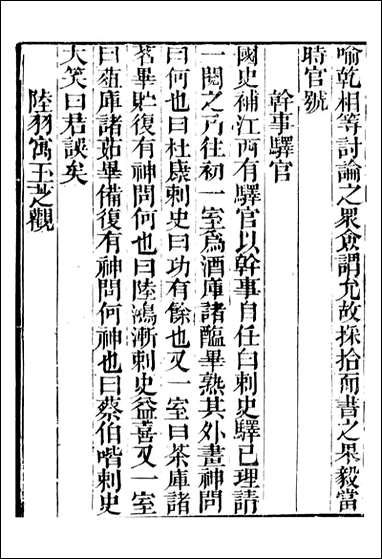 喻乾相等討論之衆僉謂允故採拾而書之果毅當
時官號
幹事驛官
國史補江西有驛官以幹事自任白刺史驛已理請
一閱之乃往初一室爲酒庫諸醞畢熟其外畫神問
曰何也曰杜康刺史曰功有餘也又一室曰茶庫諸
茗畢貯復有神問何也曰陸鴻漸刺史益喜又一室
曰葅庫諸茹畢備復有神問何神也曰蔡伯喈刺史
大笑曰君誤矣
陸羽寓玉芝觀